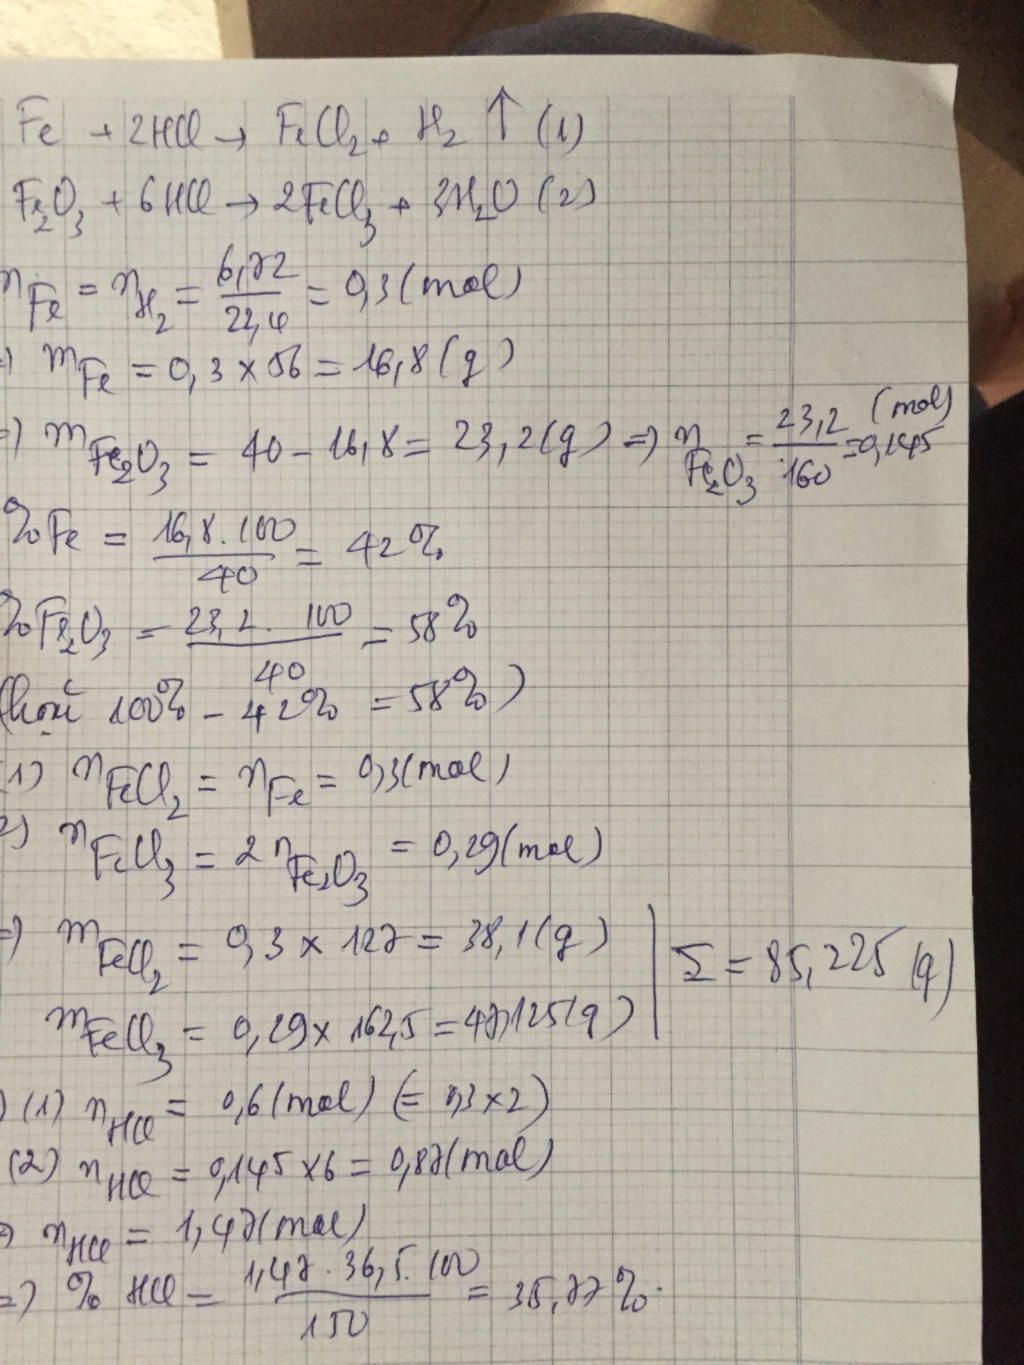 Fe + 2HCl → FeCl₂ + H₂ ↑ (1)
Fe₂O₃ + 6HCl → 2FeCl₃ + 3H₂O (2)
n Fe = n H₂ = 6,72/22,4 = 0,3 (mol)
⇒ m Fe = 0,3 × 56 = 16,8 (g)
⇒ m Fe₂O₃ = 40 - 16,8 = 23,2 (g) ⇒ n Fe₂O₃ = 23,2/160 = 0,145 (mol)
%Fe = 16,8 . 100/40 = 42%
%Fe₂O₃ = 23,2 . 100/40 = 58%
(hoặc 100% - 42% = 58%)
(1) n FeCl₂ = n Fe = 0,3 (mol)
2) n FeCl₃ = 2 n Fe₂O₃ = 0,29 (mol)
⇒ m FeCl₂ = 0,3 × 127 = 38,1 (g)
m FeCl₃ = 0,29 × 162,5 = 47,125 (g)
Σ = 85,225 (g)
) (1) n HCl = 0,6 (mol) (= 0,3 × 2)
(2) n HCl = 0,145 × 6 = 0,87 (mol)
⇒ n HCl = 1,47 (mol)
⇒ % HCl = 1,47 . 36,5 . 100/150 = 35,77%.